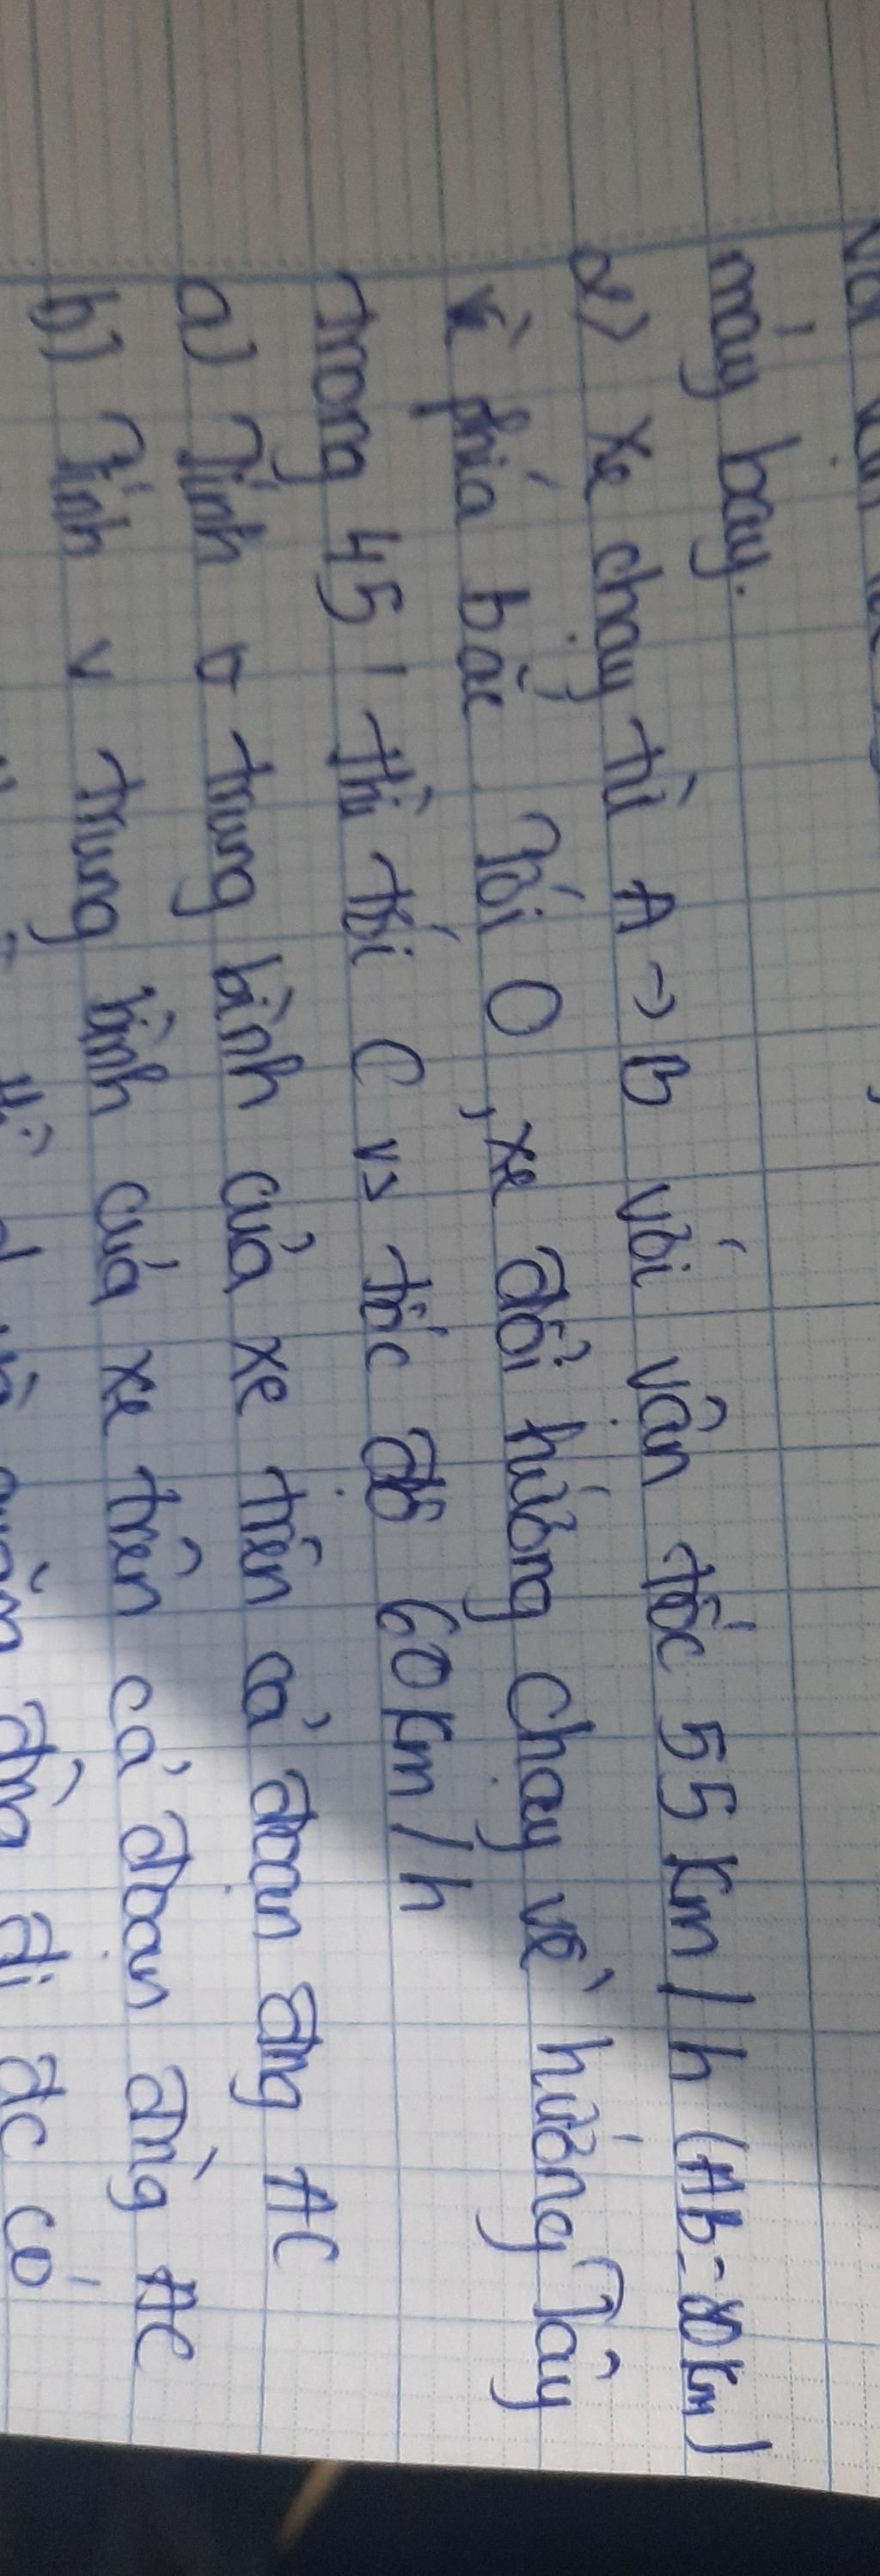 máy bay.
2) xe chạy từ A → B với vận tốc 55 km/h (AB = 80 km)
về phía bắc. Tới O, xe đổi hướng chạy về hướng Tây
trong 45' thì tới C vs tốc độ 60 km/h
a) Tính v trung bình của xe trên cả đoạn đng AC
b) Tính v trung bình của xe trên cả đoạn đng AC